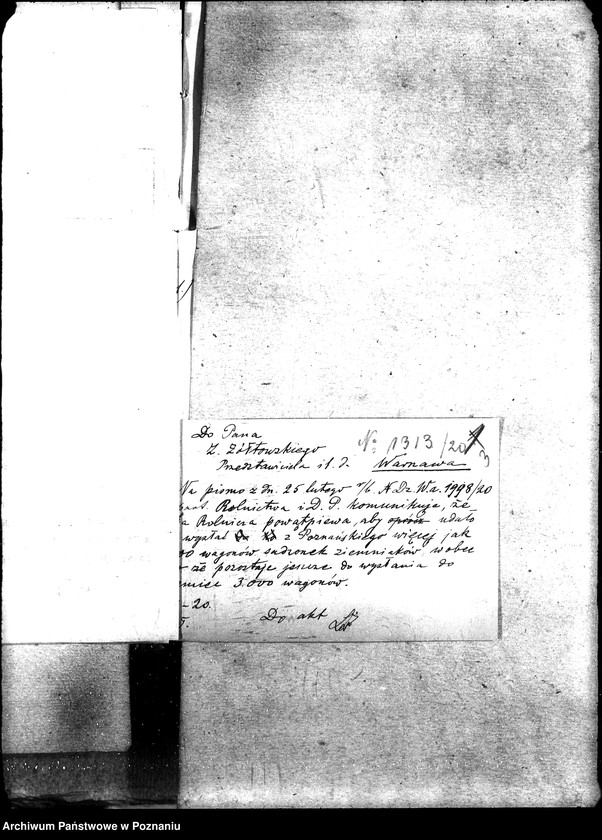 Do Pana
Z. Żółtowskiego
Przedstawiciela i t. d.
Warszawa
№ 1313/20
Na pismo z dn. 25 lutego r/b. N Dz. W.a. 1998/20
Rolnictwa i D. P. komunikuje, że
a Rolnicza powątpiewa, aby oprócz udało
wysłać z Poznańskiego więcej jak
00 wagonów sadzonek ziemniaków, wobec
pozostaje jeszcze do wysłania do
3.000 wagonów.
– 20.
Do akt
Archiwum Państwowe w Poznaniu